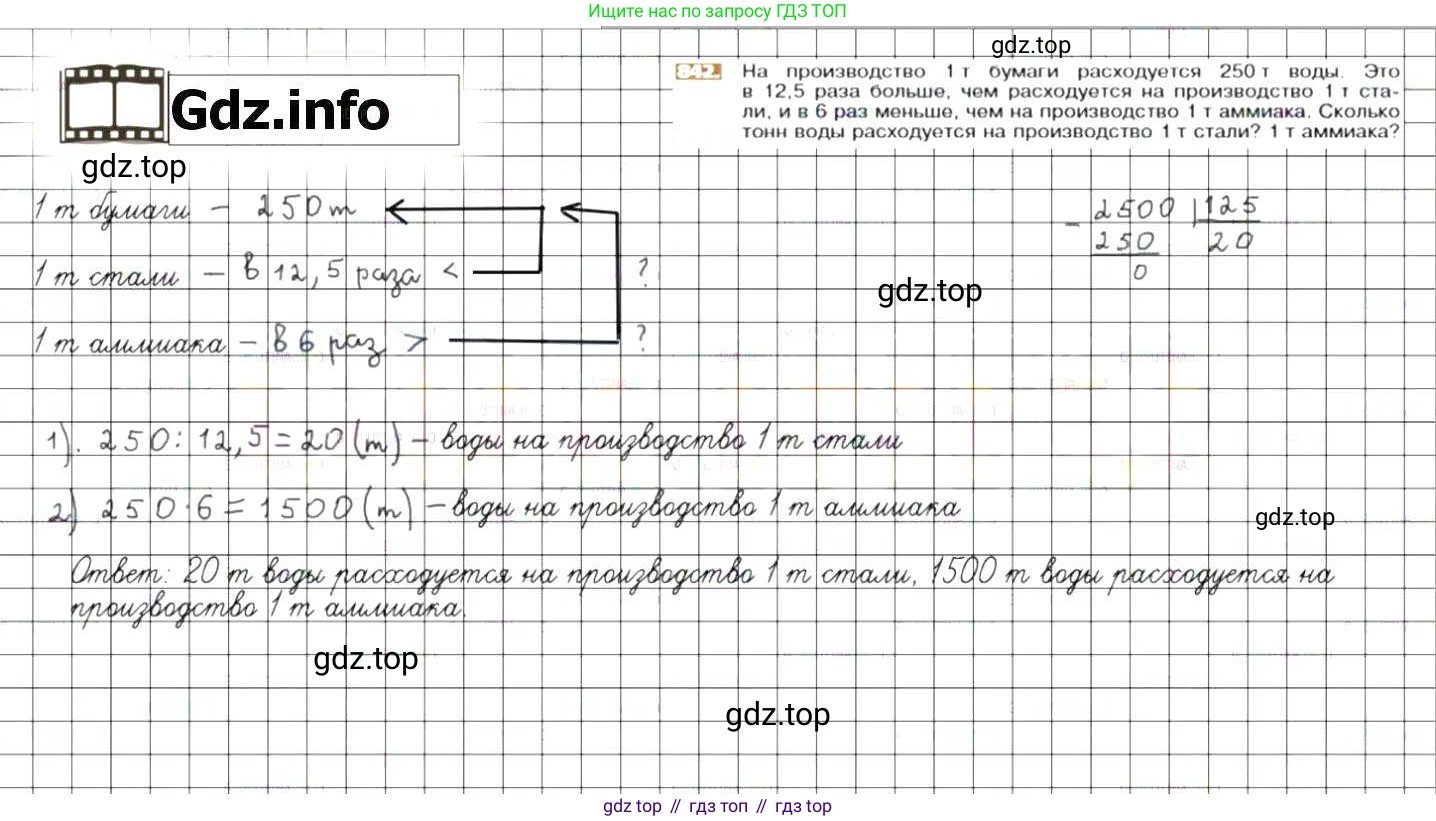 Ищите нас по запросу ГДЗ ТОП
gdz.top
Gdz.info
gdz.top
842. На производство 1 т бумаги расходуется 250 т воды. Это
в 12,5 раза больше, чем расходуется на производство 1 т ста-
ли, и в 6 раз меньше, чем на производство 1 т аммиака. Сколько
тонн воды расходуется на производство 1 т стали? 1 т аммиака?
1 т бумаги - 250 т
1 т стали - в 12,5 раза < ?
1 т аммиака - в 6 раз > ?
- 2500 | 125
250 20
0
gdz.top
1). 250 : 12,5 = 20 (т) - воды на производство 1 т стали
2) 250 · 6 = 1500 (т) - воды на производство 1 т аммиака
gdz.top
Ответ: 20 т воды расходуется на производство 1 т стали, 1500 т воды расходуется на
производство 1 т аммиака.
gdz.top
gdz.top
gdz top // гдз топ // gdz.top